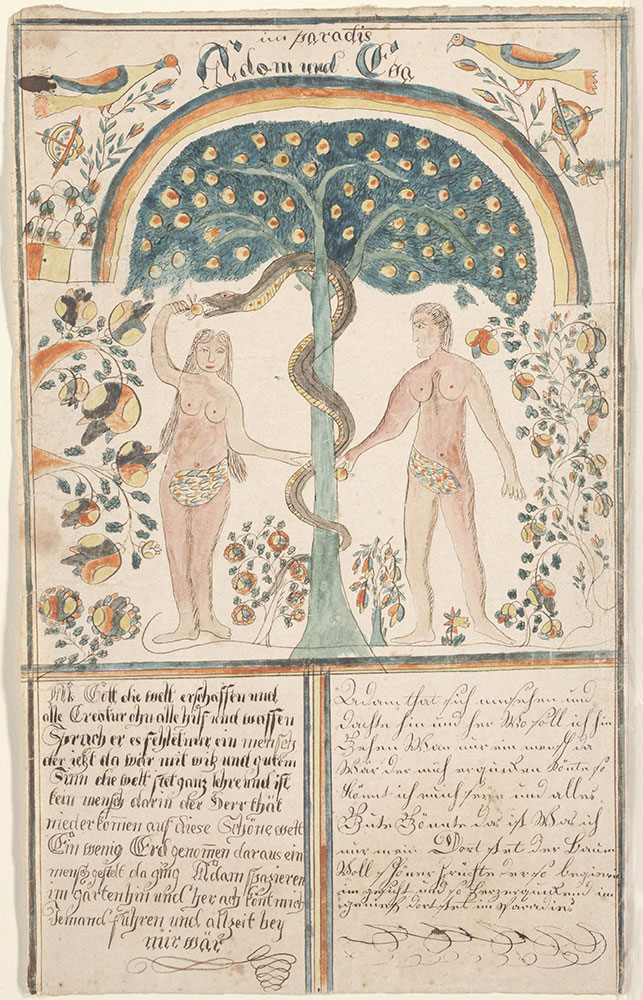 im paradis
Adom und Efa
Als Gott die welt erschaffen und
alle Creatur ohn alle hilf und waffen
Sprach er es fehlet nur ein mensch
der jetzt da wär mit witz und gutem
Sinn die welt stet ganz lehr und ist
kein mensch darin der Herr that
nieder kommen auf diese Schöne welt
Ein wenig Erd genomen daraus ein
mensch gestelt da ging Adam spazieren
im garten hin und her ach kont mich
Jemand führen und allzeit bey
mir wär
Adam that sich umsehen und
dachte hin und her Wo soll ich hin
Gehen Wan nur ein mensch da
Wär der mich erquicken könte so
könnt ich ruich sein und alles
Gute das ist Was ich
nur mein Dort stet der baum
Voll schöner früchte der so begierig
im gesicht und so herzerquickend im
genies dort stet im Paradies